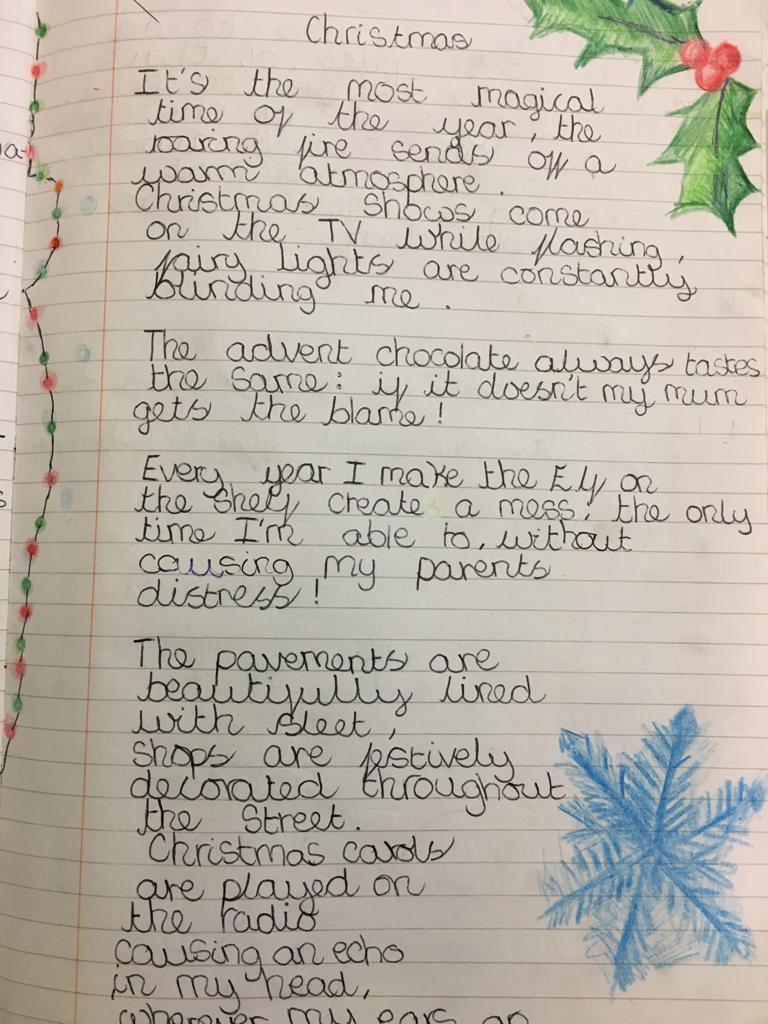 Christmas
It's the most magical
time of the year, the
roaring fire sends off a
warm atmosphere.
Christmas shows come
on the TV while flashing,
fairy lights are constantly
blinding me.
The advent chocolate always tastes
the same: if it doesn't my mum
gets the blame!
Every year I make the Elf on
the shelf create a mess: the only
time I'm able to, without
causing my parents
distress!
The pavements are
beautifully lined
with sleet,
shops are festively
decorated throughout
the Street.
Christmas carols
are played on
the radio
causing an echo
in my head,
wherever my ears